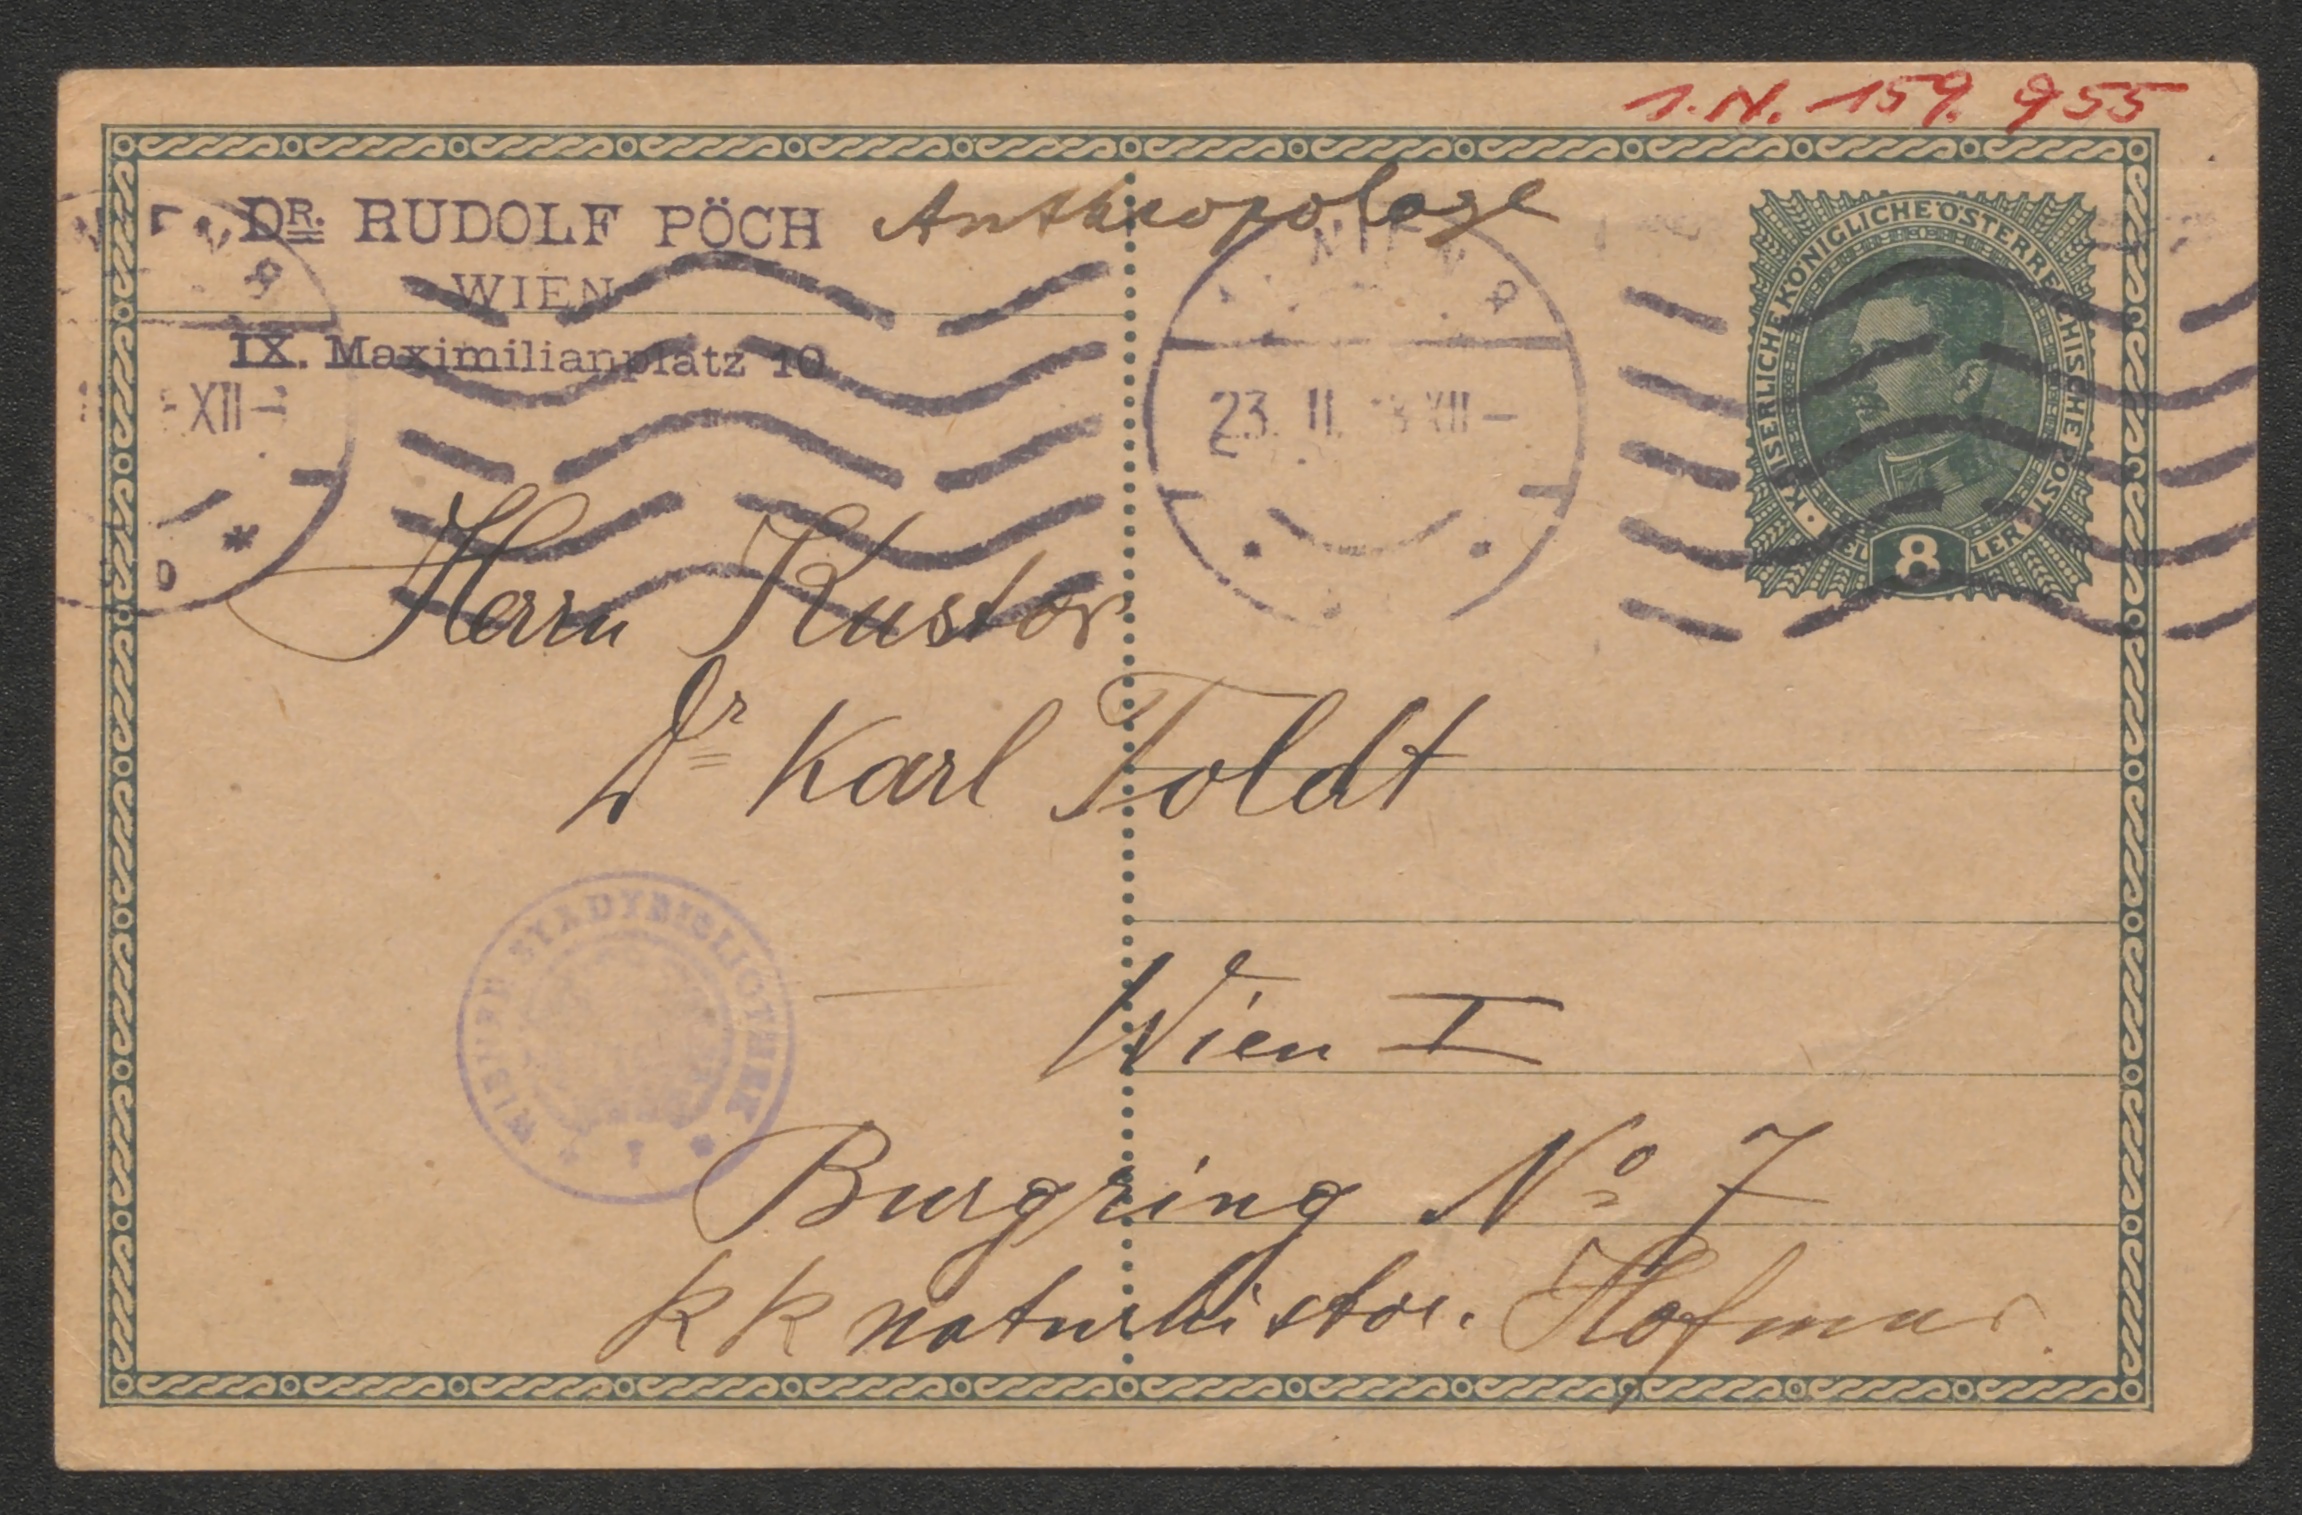 I.N. 159.955
DR. RUDOLF PÖCH Anthropologe
WIEN
IX. Maximilianplatz 10
KAISERLICHE KÖNIGLICHE ÖSTERREICHISCHE POST
8
WIEN
23. II. 18 XII-
XII-
Herrn Kustos
Dr Karl Toldt
WIENER STADTBIBLIOTHEK
Wien I
Burgring No 7
k k naturhistor. Hofmus.